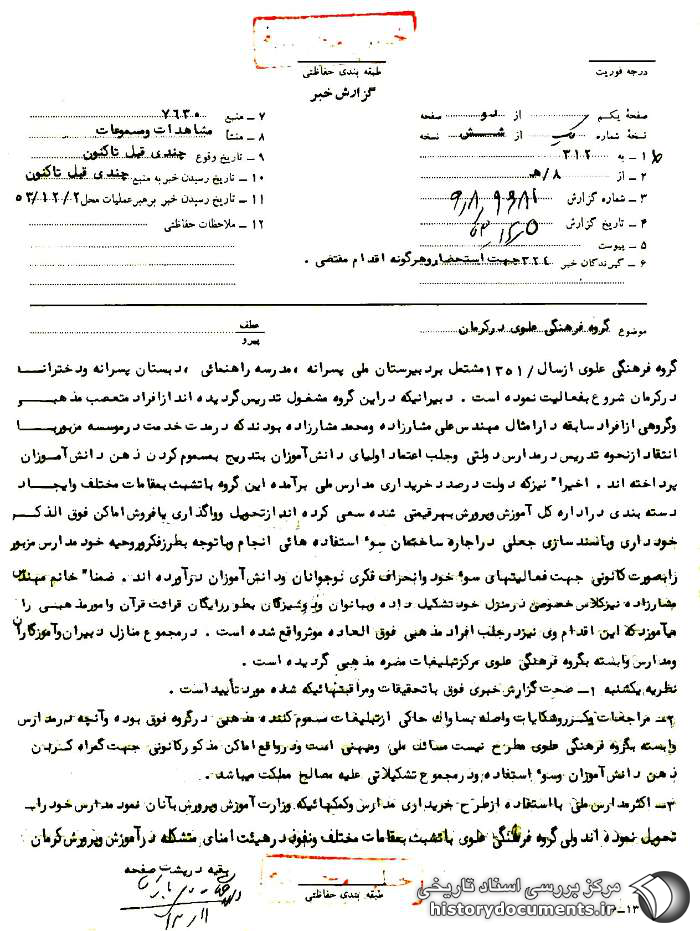 طبقه بندی حفاظتی
گزارش خبر
درجه فوریت
صفحهٔ یکم از دو صفحه
نسخهٔ شماره از شش نسخه
۱ ـ به ۳۱۲
۲ ـ از ۸/هـ
۳ ـ شماره گزارش
۴ ـ تاریخ گزارش
۵ ـ پیوست
۶ ـ گیرندگان خبر ۳۲۴ جهت استحضار و هرگونه اقدام مقتضی .
۷ ـ منبع ۷۶۳۰
۸ ـ منشأ مشاهدات ومسموعات
۹ ـ تاریخ وقوع چندی قبل تاکنون
۱۰ ـ تاریخ رسیدن خبر به منبع چندی قبل تاکنون
۱۱ ـ تاریخ رسیدن خبر برهبر عملیات محل ۵۳/۱۲/۲
۱۲ ـ ملاحظات حفاظتی
موضوع گروه فرهنگی علوی درکرمان
عطف
پیرو
گروه فرهنگی علوی ازسال /۱۳۵۱ مشتمل بردبیرستان ملی پسرانه ، مدرسه راهنمائی ، دبستان پسرانه ودخترانه
درکرمان شروع بفعالیت نموده است . دبیرانیکه دراین گروه مشغول تدریس گردیده اند ازافراد متعصب مذهبی
وگروهی ازافراد سابقه دارامثال مهندس علی مشارزاده ومحمد مشارزاده بودند که درمدت خدمت درموسسه مزبوربا
انتقاد ازنحوه تدریس درمدارس دولتی وجلب اعتماد اولیای دانش آموزان بتدریج بمسموم کردن ذهن دانش آموزان
پرداخته اند . اخیرا" نیزکه دولت درصدد خریداری مدارس ملی برآمده این گروه باتشبث بمقامات مختلف وایجاد
دسته بندی دراداره کل آموزش وپرورش بهرقیمتی شده سعی کرده اند ازتحویل وواگذاری یافروش اماکن فوق الذکر
خود داری وباسند سازی جعلی دراجاره ساختمان سوء استفاده هائی انجام وباتوجه بطرزفکروروحیه خود مدارس مزبور
رابصورت کانونی جهت فعالیتهای سوء خود وانحراف فکری نوجوانان ودانش آموزان درآورده اند . ضمنا" خانم مهندس
مشارزاده نیزکلاس خصوصی درمنزل خود تشکیل داده وببانوان ودوشیزگان بطوررایگان قرائت قرآن وامورمذهبی را
میآموزد که این اقدام وی نیزدرجلب افراد مذهبی فوق العاده موثرواقع شده است . درمجموع منازل دبیران وآموزگاران
ومدارس وابسته بگروه فرهنگی علوی مرکزتبلیغات مضره مذهبی گردیده است .
نظریه یکشنبه ۱ـ صحت گزارش خبری فوق باتحقیقات ومراقبتهائیکه شده مورد تأیید است .
۲ـ مراجعات مکرروشکایات واصله بساواک حاکی ازتبلیغات مسموم کننده مذهبی درگروه فوق بوده وآنچه درمدارس
وابسته بگروه فرهنگی علوی مطرح نیست مسائل ملی ومیهنی است ودرواقع اماکن مذکورکانونی جهت گمراه کردن
ذهن دانش آموزان وسوء استفاده ودرمجموع تشکیلاتی علیه مصالح مملکت میباشد .
۳ـ اکثرمدارس ملی بااستفاده ازطرح خریداری مدارس وکمکهائیکه وزارت آموزش وپرورش بآنان نمود مدارس خودرا
تحویل نموده اند ولی گروه فرهنگی علوی باتشبث بمقامات مختلف ونفوذ درهیئت امنای متشکله درآموزش وپرورش کرمان
بقیه درپشت صفحه
طبقه بندی حفاظتی
مرکز بررسی اسناد تاریخی
historydocuments.ir